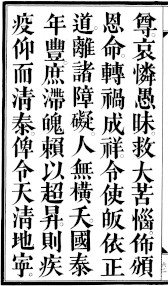 尊哀憐愚昧救大苦惱佈頒
恩命轉禍成祥令使皈依正
道離諸障礙人無橫夭國泰
年豐庶滯魄賴以超昇則疾
疫仰而清泰俾令天清地寧